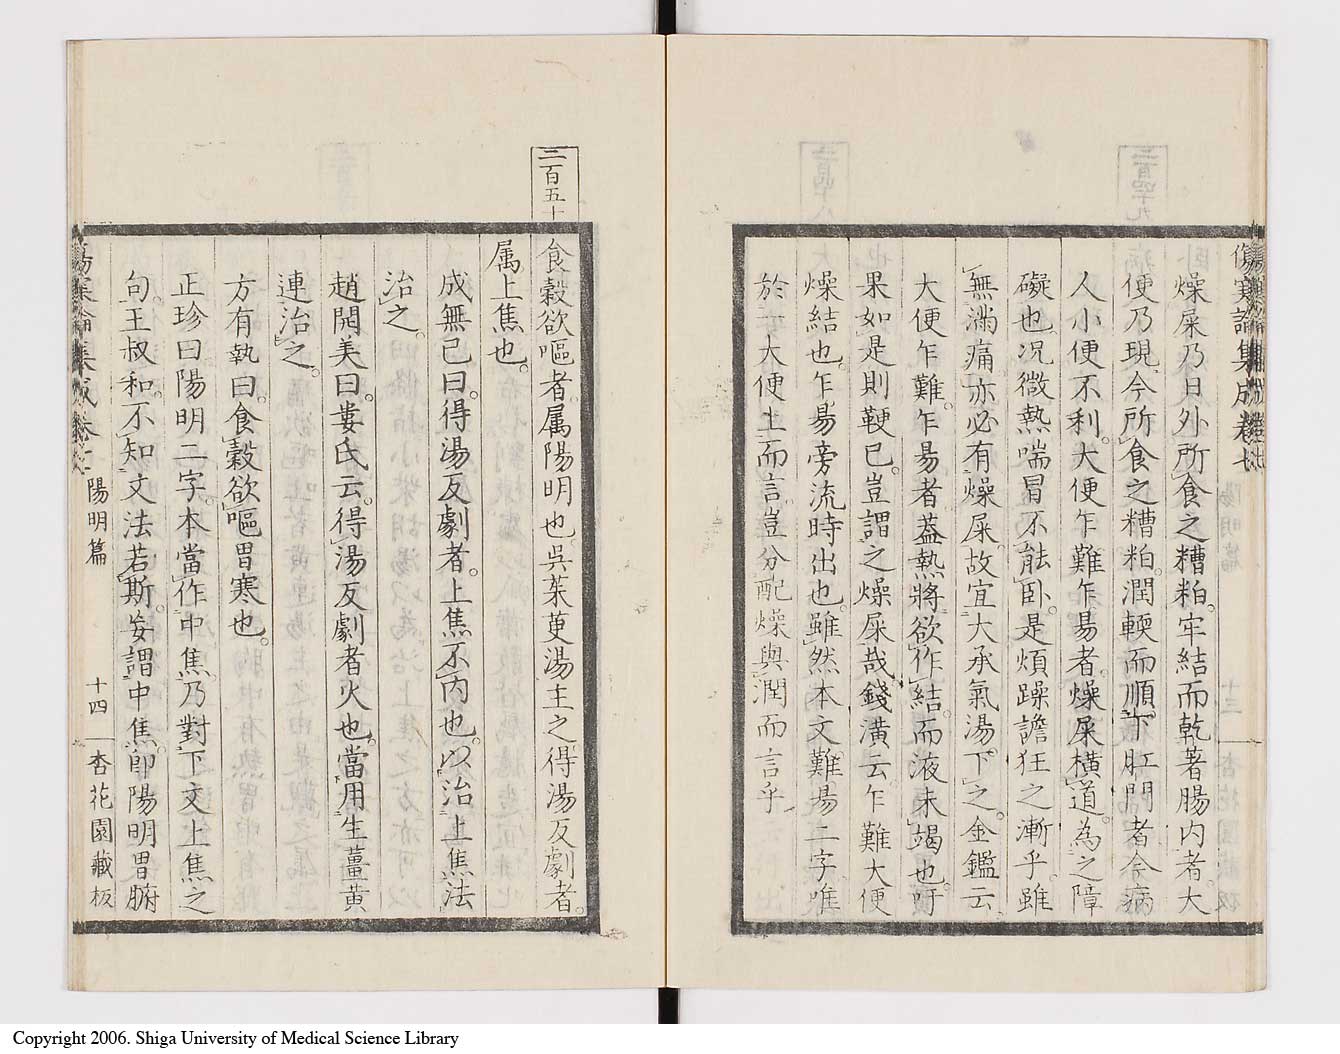 傷寒論集成卷七
燥屎乃日外所食之糟粕。牢結而乾著腸内者。大
便乃現今所食之糟粕。潤輭而順下肛門者。今病
人小便不利。大便乍難乍易者。燥屎橫道。為之障
礙也。况微熱喘冒不能臥。是煩躁譫狂之漸乎。雖
無滿痛。亦必有燥屎。故宜大承氣湯下之。金鑑云。
大便乍難。乍易者。葢熱將欲作結。而液未竭也。吁
果如是則鞕已。豈謂之燥屎哉。錢潢云。乍難大便
燥結也。乍易旁流時出也。雖然本文。難易二字。唯
於一大便上而言。豈分配燥與潤而言乎。
二百五十
食穀欲嘔者。属陽明也。呉茱萸湯主之。得湯反劇者。
属上焦也。
成無已曰。得湯反劇者。上焦不内也。以治上焦法
治之。
趙開美曰。婁氏云。得湯反劇者火也。當用生薑黄
連治之。
方有執曰。食穀欲嘔胃寒也。
正珍曰。陽明二字。本當作中焦。乃對下文上焦之
句。王叔和。不知文法若斯。妄謂中焦。即陽明胃腑
陽明篇
十四
杏花園藏板
Copyright 2006. Shiga University of Medical Science Library